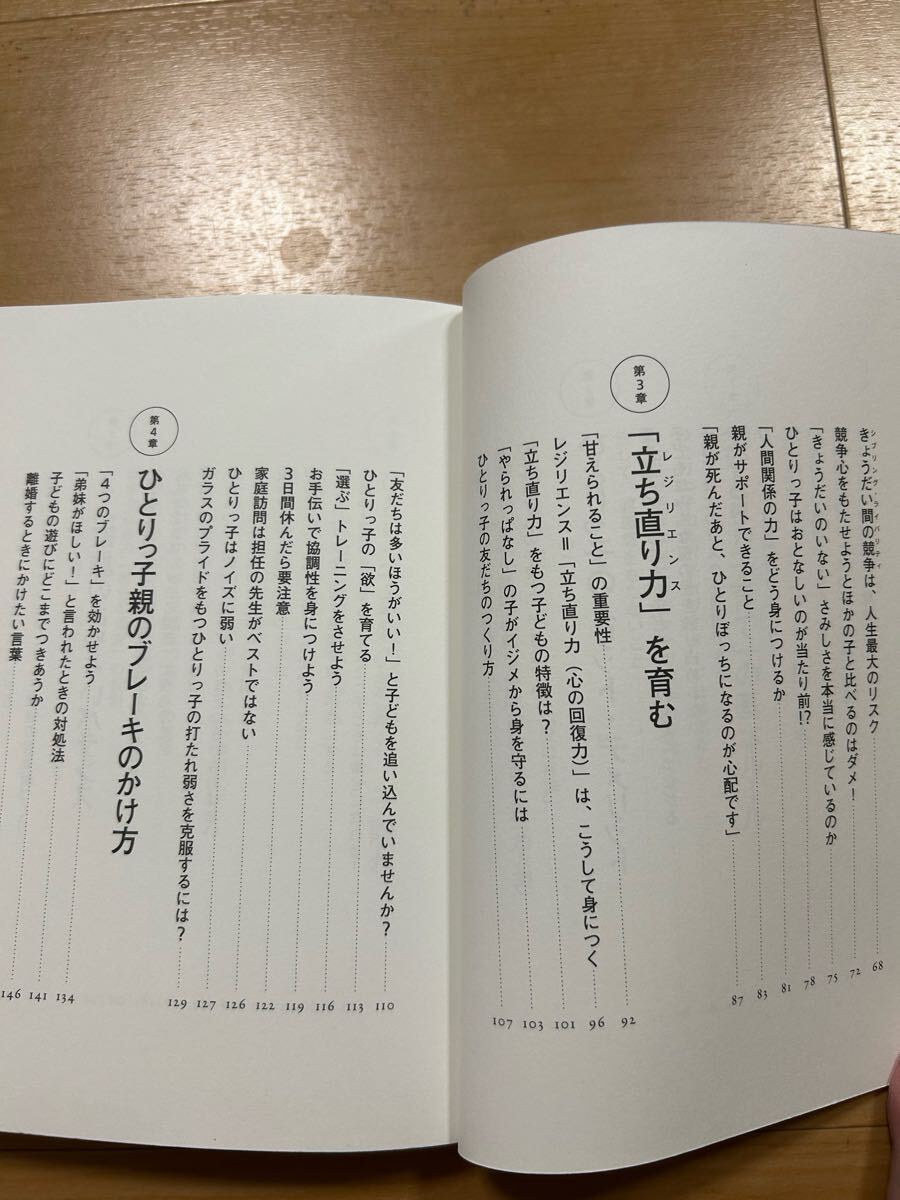 きょうだい間の競争は、人生最大のリスク 68
シブリング・ライバリティ
競争心をもたせようとほかの子と比べるのはダメ！ 72
「きょうだいのいない」さみしさを本当に感じているのか 75
ひとりっ子はおとなしいのが当たり前!? 78
「人間関係の力」をどう身につけるか 81
親がサポートできること 83
「親が死んだあと、ひとりぼっちになるのが心配です」 87
第3章
「立ち直り力」を育む
レジリエンス
「甘えられること」の重要性 92
レジリエンス＝「立ち直り力（心の回復力）」は、こうして身につく 96
「立ち直り力」をもつ子どもの特徴は？ 101
「やられっぱなし」の子がイジメから身を守るには 103
ひとりっ子の友だちのつくり方 107
「友だちは多いほうがいい！」と子どもを追い込んでいませんか？ 110
ひとりっ子の「欲」を育てる 113
「選ぶ」トレーニングをさせよう 116
お手伝いで協調性を身につけよう 119
3日間休んだら要注意 122
家庭訪問は担任の先生がベストではない 126
ひとりっ子はノイズに弱い 127
ガラスのプライドをもつひとりっ子の打たれ弱さを克服するには？ 129
第4章
ひとりっ子親のブレーキのかけ方
「4つのブレーキ」を効かせよう 134
「弟妹がほしい！」と言われたときの対処法 141
子どもの遊びにどこまでつきあうか 146
離婚するときにかけたい言葉